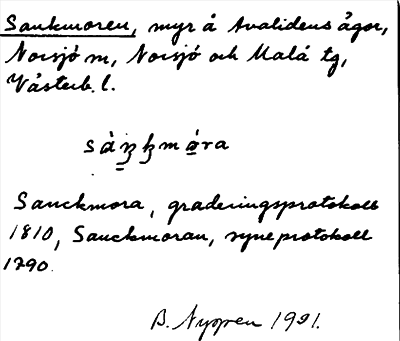 Sankmoren, myr å Avalidens ägor,
Norsjö m, Norsjö och Malå tg,
Västerb. l.
Sanckmora, graderingsprotokoll
1810, Sanckmoran, syneprotokoll
1790.
1921.